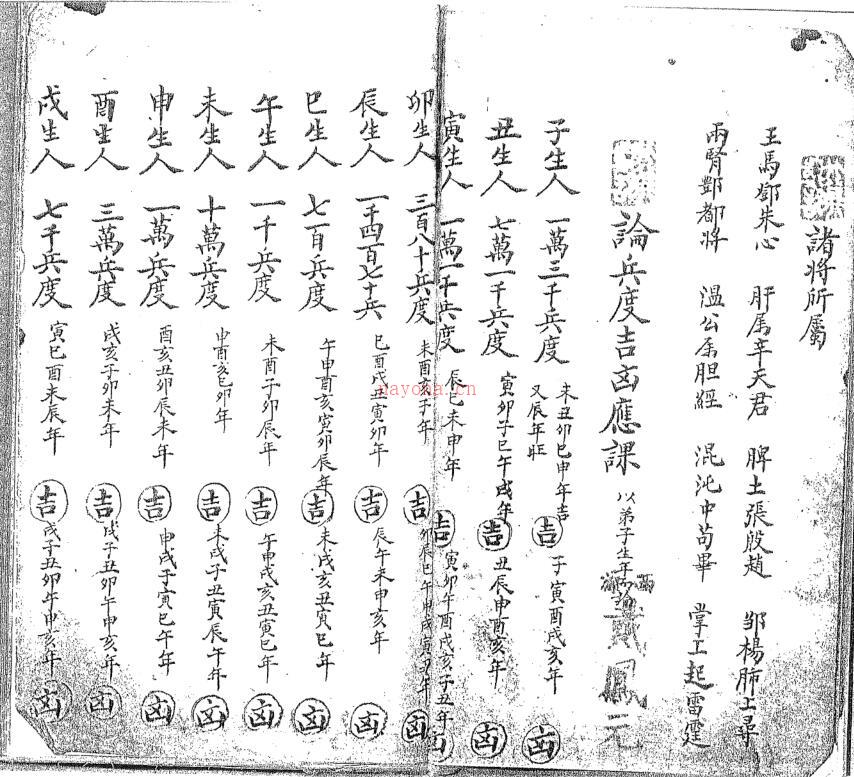 諸將所屬
王馬鄧朱心 肝屬辛天君 脾土張殷趙 邹楊肺上尋
兩腎酆都將 溫公屬胆經 混沌中苟畢 掌工起雷霆
論兵度吉凶應課 以弟子生年
子生人 一萬三千兵度 未丑卯巳申年吉 又辰年旺 吉 子寅酉戌亥年 凶
丑生人 七萬一千兵度 寅卯子巳午戌年 吉 丑辰申酉亥年 凶
寅生人 一萬一千兵度 辰巳未申年 吉 寅卯午酉戌亥子丑年 凶
卯生人 三百八十兵度 未酉亥子年 吉 卯辰巳午申戌寅丑年 凶
辰生人 一千四百七十兵 巳酉戌丑寅卯年 吉 辰午未申亥年 凶
巳生人 七百兵度 午申酉亥寅卯辰年 吉 未戌亥丑寅巳年 凶
午生人 一千兵度 未酉子卯辰年 吉 午申戌亥丑寅巳年 凶
未生人 十萬兵度 申酉亥巳卯年 吉 未戌子丑寅辰午年 凶
申生人 一萬兵度 酉亥丑卯辰未年 吉 申戌子寅巳午年 凶
酉生人 三萬兵度 戌亥子卯未年 吉 戌子丑卯午申亥年 凶
戌生人 七千兵度 寅巳酉未辰年 吉 戌子丑卯午申亥年 凶
nayona.cn